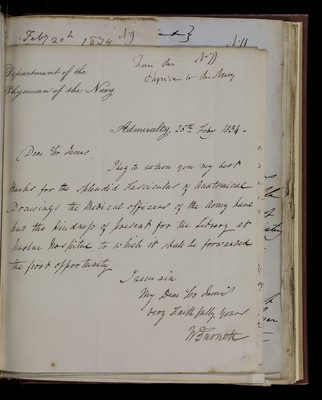 Feby 20th 1834
No 11
From the No 11
Physician to the Navy
Department of the
Physician of the Navy
Admiralty, 25th Feby 1834 -
Dear Sir James,
I beg to return you my best
thanks for the splendid Fasciculus of Anatomical
Drawings the Medical officers of the Army have
had the kindness of present for the Library at
Haslar Hospital to which it shall be forwarded
the first opportunity.
I remain
My Dear Sir James
very Faithfully yours
W Burnett